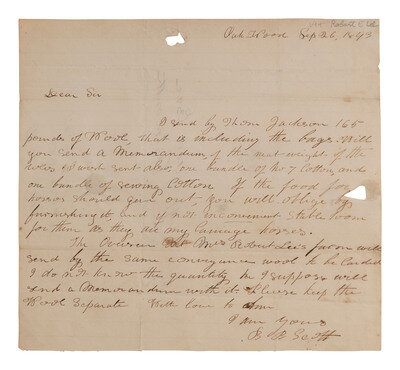 Oak Wood Sep 26, 1843
Dear Sir
I send by Thom Jackson 165
pounds of Wool, that is including the bags. Will
you send a Memorandum of the nut weight of the
wool & work sent also one bundle of No 7 Cotton, and
one bundle of sewing Cotton If the food for
horses should give out, you will oblige by
furnishing it, and if not inconvenient stable room
for them as they are my Carriage horses.
The Overseer at Mrs farm will
send by the same conveyance wool to be Carded
I do not know the quantity he I suppose will
send a Memorandum with it. Please keep the
Wool Separate With love to
I am yours
Scott